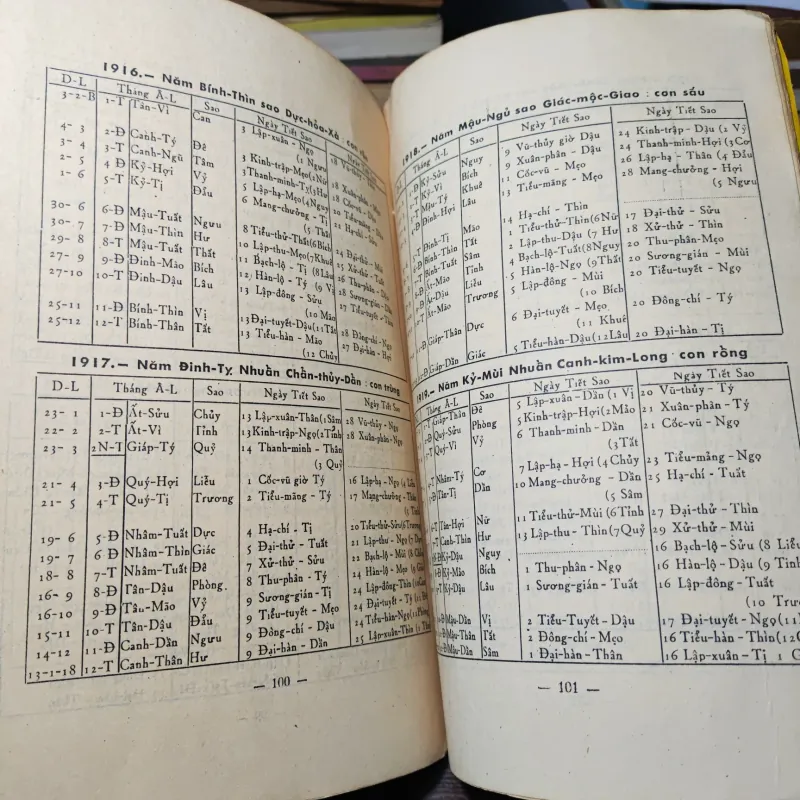 1916.— Năm Bính-Thìn sao Dực-hỏa-Xà : con
D-L Tháng Â-L Sao Ngày Tiết Sao
3-2-B 1-T Tân-Vi Can 3 Lập-xuân - Ngọ
4- 3 2-Đ Canh-Tý Đê
3- 4 3-T Canh-Ngũ Tâm 3 Kinh-trập-Mẹo
2- 5 4-Đ Kỷ-Hợi Vỷ 3 Thanh-minh-Tỵ
1- 6 5-T Kỷ-Tị Đẩu 3 Lập-hạ-Mẹo(4Nguy
6 Mang-chưởng - Tị
30- 6 6-Đ Mậu-Tuất Ngưu
30- 7 7-Đ Mậu-Thìn Hư 8 Tiểu-thử-Thất(6Bích
29- 8 8-T Mậu-Tuất Thất 10 Lập-thu-Mẹo(7Khuê
27- 9 9-Đ Đinh-Mão Bích 11 Bạch-lộ - Tị (8Lâu
27-10 10-T Đinh-Dậu Lâu 12 Hàn-lộ - Tý (9 Vị
13 Lập-đông - Sửu
(10 Mão
25-11 11-Đ Bính-Thìn Vị 13 Đại-tuyết-Dậu(11Tất
25-12 12-T Bính-Thân Tất 13 Tiểu-hàn - Mão
(12 Chủy
1917.— Năm Đinh-Tỵ Nhuần Chẩn-thủy-Dẫn : con trùng
D-L Tháng Â-L Sao Ngày Tiết Sao Ngày Tiết Sao
23- 1 1-Đ Ất-Sửu Chủy 13 Lập-xuân-Thân(1Sâm 28 Vũ-thủy - Ngọ
22- 2 2-T Ất-Vi Tỉnh 13 Kinh-trập-Ngọ(2Tỉnh 28 Xuân-phân - Ngọ
23- 3 2N-T Giáp-Tý Quỷ 14 Thanh-minh - Thân
(3 Quỷ
21- 4 3-Đ Quý-Hợi Liễu 1 Cốc-vũ giờ Tý 16 Lập-hạ - Ngọ (4 Liễu
21- 5 4-T Quý-Tị Trương 2 Tiểu-mãng - Tý 17 Mang-chưởng-Thân
19- 6 5-Đ Nhâm-Tuất Dực 4 Hạ-chí - Tị 20 Tiểu-thử-Sửu(6Trương
19- 7 6-Đ Nhâm-Thìn Giác 5 Đại-thử - Tuất 21 Lập-thu - Ngọ
18- 8 7-T Nhâm-Tuất Đê 7 Xử-thử - Sửu 22 Bạch-lộ-Mùi
16- 9 8-Đ Tân-Dậu Phòng 8 Thu-phân - Tý 24 Hàn-lộ - Tý
16-10 9-Đ Tân-Mão Vỷ 9 Sương-gián - Tý 24 Lập-đông-Thìn
15-11 10-T Tân-Dậu Đẩu 9 Tiểu-tuyết - Mẹo 24 Đại-tuyết - Tý
14-12 11-Đ Canh-Dần Ngưu 9 Đông-chí - Dậu 24 Tiểu-hàn-Ngọ
13-1-18 12-T Canh-Thân Hư 9 Đại-hàn - Dần 25 Lập-xuân-Thìn
— 100 —
1918.— Năm Mậu-Ngũ sao Giác-mộc-Giao : con sấu
Tháng Â-L Sao Ngày Tiết Sao Ngày Tiết Sao
Kỷ-Sửu Nguy 9 Vũ-thủy giờ Dậu 24 Kinh-trập - Dậu (2 Vỷ
Kỷ-Vi Bích 9 Xuân-phân - Dậu 24 Thanh-minh-Hợi (3Cơ
Mậu-Tý Khuê 11 Cốc-vũ - Mẹo 26 Lập-hạ - Thân (4 Đẩu
Đinh-Hợi Lâu 13 Tiểu-mãng - Mẹo 28 Mang-chưởng - Hợi
(5 Ngưu
Đinh-Tị Mão 14 Hạ-chí - Thìn
Tất 1 Tiểu-thử-Thìn(6Nữ 17 Đại-thử - Sửu
Sâm 2 Lập-thu-Dậu (7 Hư 18 Xử-thử - Thìn
Tỉnh 4 Bạch-lộ-Tuất(8Nguy 20 Thu-phân-Mẹo
Ất-Dậu Liễu 5 Hàn-lộ-Ngọ (9Thất 20 Sương-gián - Mùi
Trương 5 Lập-đông - Mùi 20 Tiểu-tuyết - Ngọ
(10 Bích
Giáp-Thân Dực 6 Đại-tuyết - Mẹo 20 Đông-chí - Tý
(11 Khuê
Giáp-Dần Giác 5 Tiểu-hàn-Dậu(12Lâu 20 Đại-hàn - Tị
1919.— Năm Kỷ-Mùi Nhuần Canh-kim-Long : con rồng
Tháng Â-L Sao Ngày Tiết Sao Ngày Tiết Sao
Giáp-Thân Đê 5 Lập-xuân-Dần (1 Vị 20 Vũ-thủy - Tý
Quý-Sửu Phòng 5 Kinh-trập-Hợi(2Mảo 21 Xuân-phân - Tý
Quý-Vi Vỷ 6 Thanh-minh - Dần 21 Cốc-vũ - Ngọ
(3Tất
Nhân-Tý Cơ 7 Lập-hạ - Hợi (4Chủy 23 Tiểu-mãng - Ngọ
Tân-Tị Dần 10 Mang-chưởng - Dần 25 Hạ-chí - Tuất
(5 Sâm
Tân-Hợi Nữ 11 Tiểu-thử-Mùi(6Tỉnh 27 Đại-thử - Thìn
Canh-Thìn Hư 13 Lập-thu - Thìn(7Quỷ 29 Xử-thử - Mùi
Kỷ-Dậu Nguy 16 Bạch-lộ-Sửu (8 Liễu
Kỷ-Mão Bích 1 Thu-phân-Ngọ 16 Hàn-lộ - Dậu (9 Tinh
Kỷ-Dậu Lâu 1 Sương-gián - Mùi 16 Lập-đông - Tuất
(10 Trương
Mậu-Dần Vị 2 Tiểu-Tuyết - Dậu 17 Đại-tuyết-Ngọ(11
Mậu-Thân Tất 2 Đông-chí - Mẹo 16 Tiểu-hàn-Thìn(12
Mậu-Dần Sâm 1 Đại-hàn - Thân 16 Lập-xuân - Tị 1 G
— 101 —